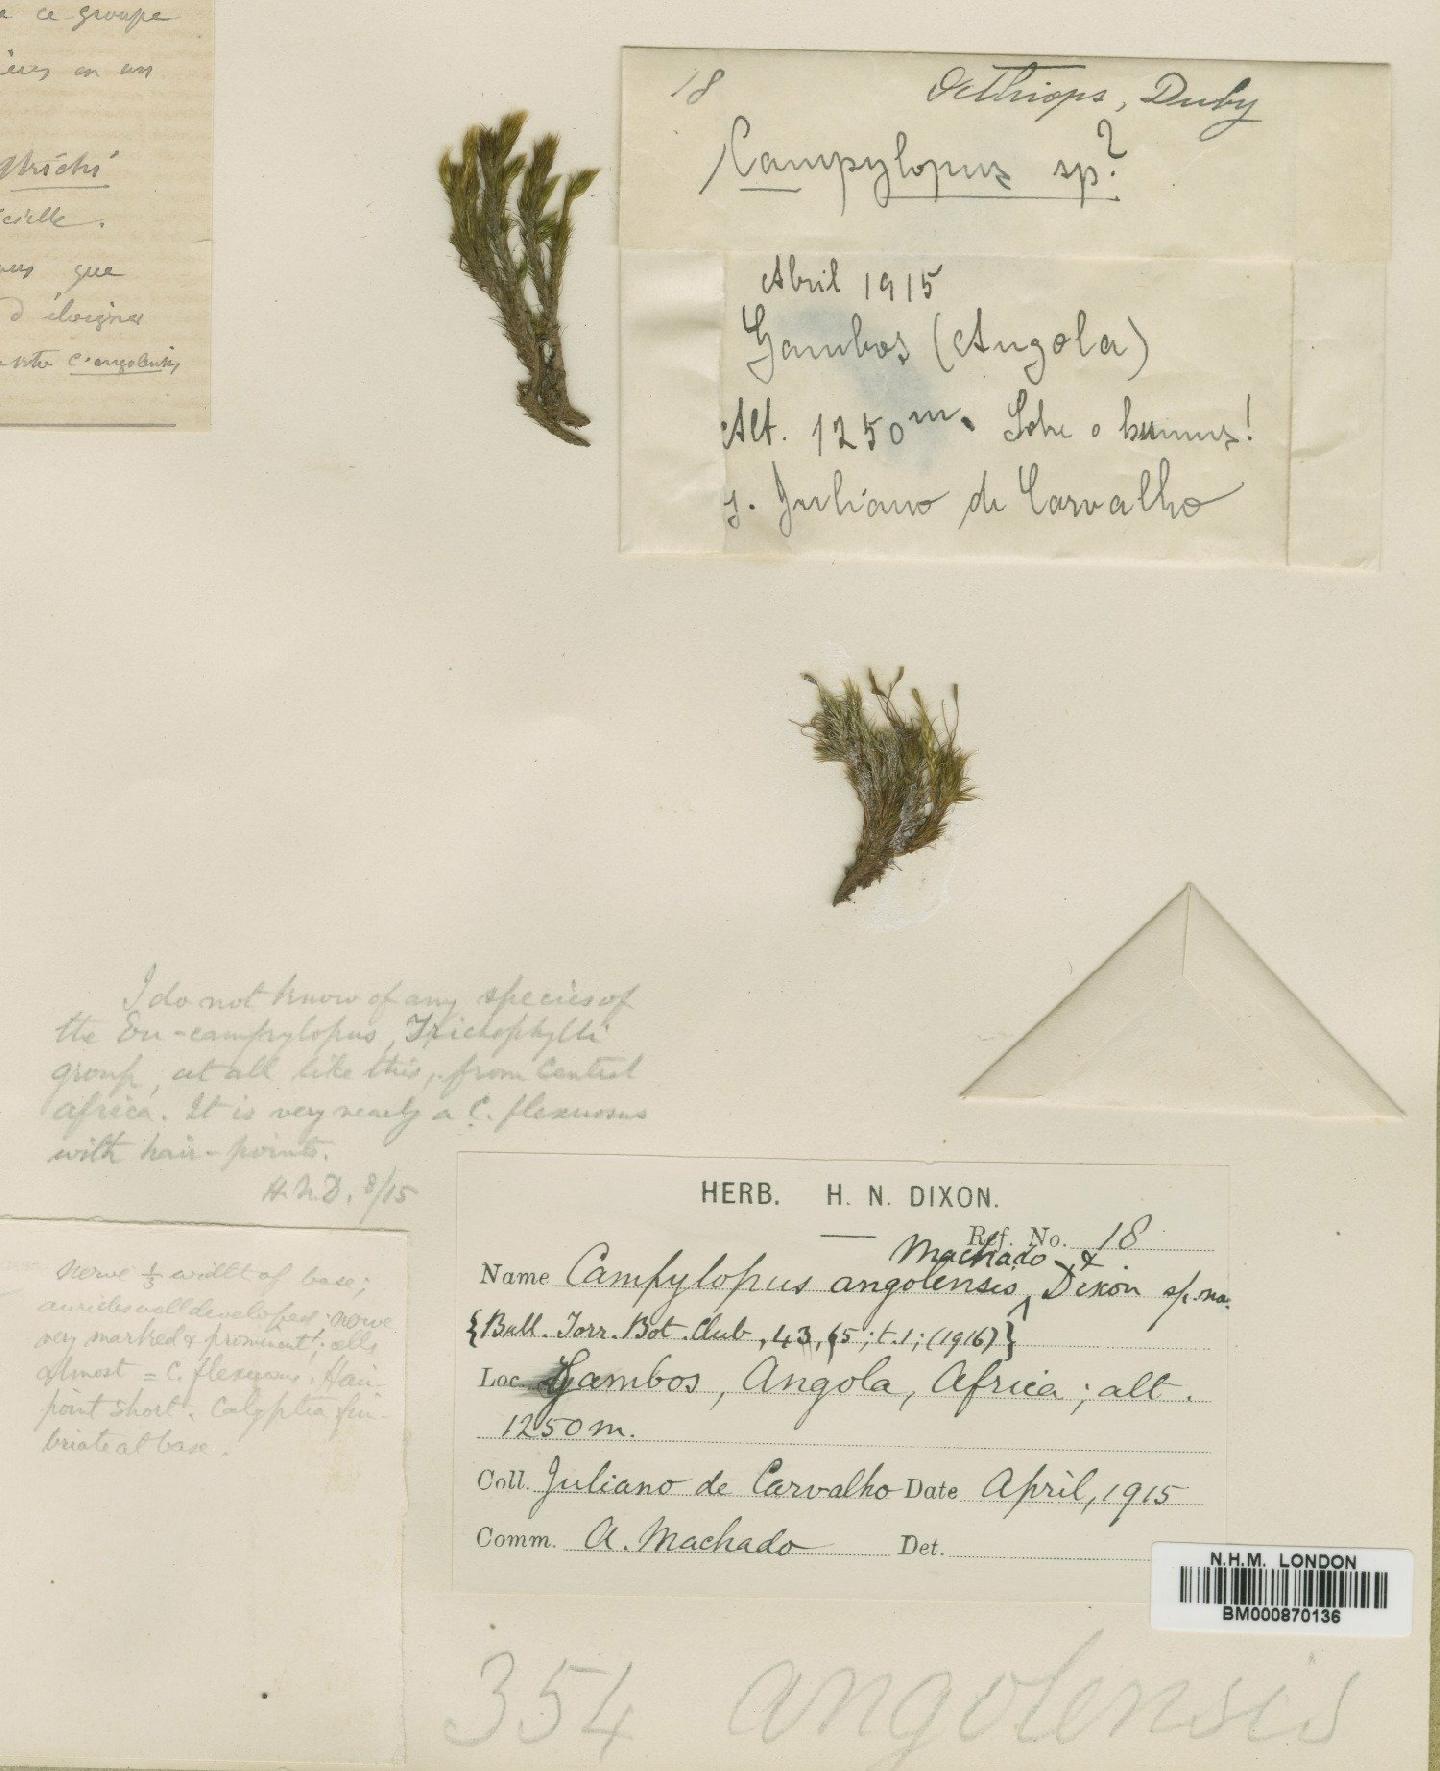 a ce groupe
en un
trichi
cielle.
que
d'éloigner
C. angolensis
18 Aethiops, Duby
Campylopus sp.?
Abril 1915
Gambos (Angola)
Alt. 1250 m. Sobre o humus!
J. Juliano de Carvalho
I do not know of any species of
the Eu-campylopus, Trichophylli
group, at all like this, from Central
Africa. It is very nearly a C. flexuosus
with hair-points.
H.N.D. 8/15
Nerve ⅓ width of base;
auricles well developed; nerve
very marked & prominent; cells
almost = C. flexuosus. Hair-
point short. Calyptra fim-
briate at base.
HERB. H. N. DIXON.
Ref. No. 18
Name Campylopus angolensis Machado & Dixon sp. no.
{Bull. Torr. Bot. Club, 43, 65; t. 1; (1916)}
Loc. Gambos, Angola, Africa; alt.
1250 m.
Coll. Juliano de Carvalho Date April, 1915
Comm. A. Machado Det.
N.H.M. LONDON
BM000870136
354 angolensis